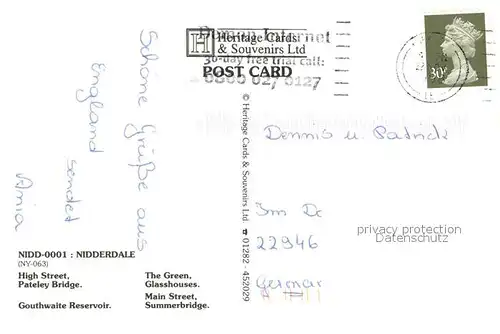 Demon Internet
30-day free trial call:
0800 027 0127
H
Heritage Cards
& Souvenirs Ltd
POST CARD
30P
Schöne Grüße aus
England sendet
Ania
© Heritage Cards & Souvenirs Ltd. 01282 - 452029
Dennis u. Patrick
Im Do
22946
German
privacy protection
Datenschutz
NIDD-0001 : NIDDERDALE
(NY-063)
High Street,
Pateley Bridge.
Gouthwaite Reservoir.
The Green,
Glasshouses.
Main Street,
Summerbridge.